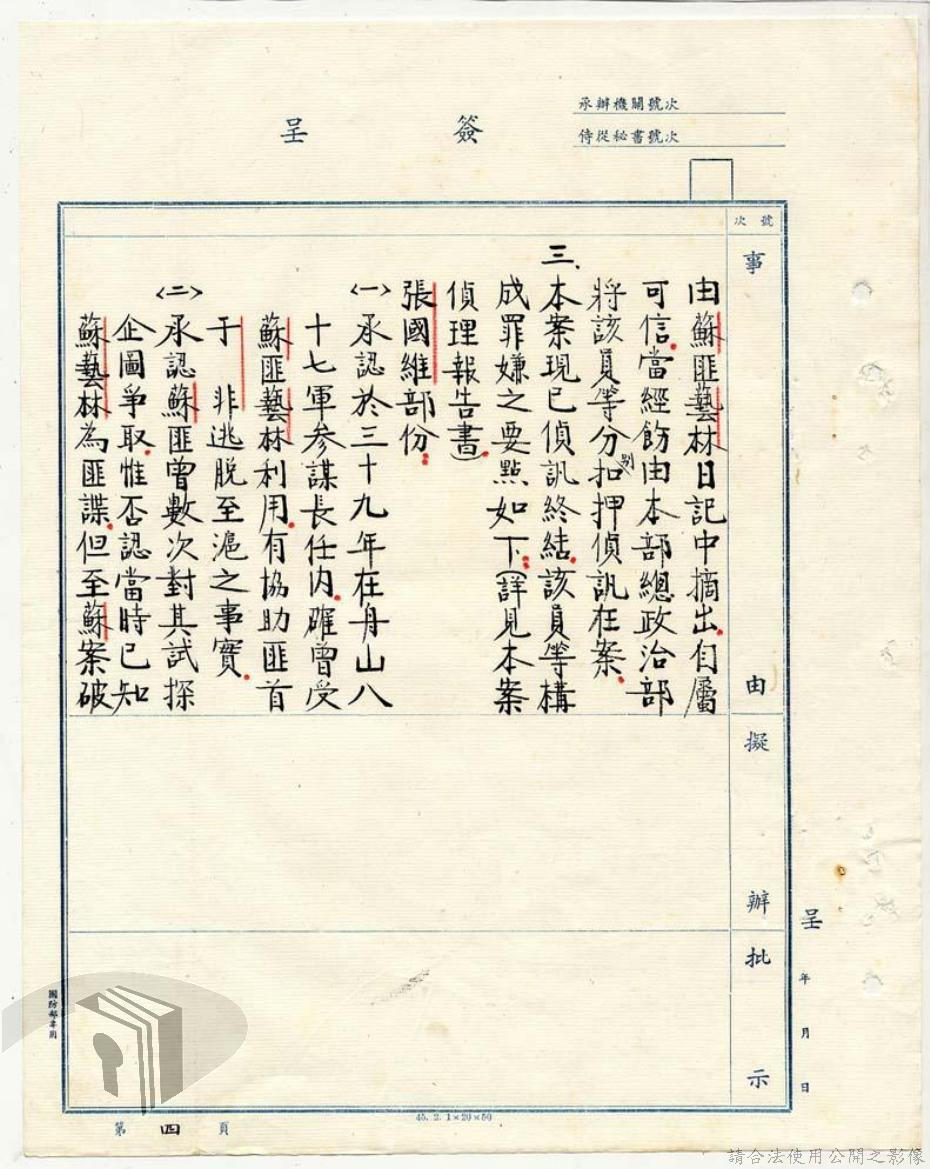 承辦機關號次
侍從秘書號次
簽呈
號次
事由
擬辦
批示
由蘇匪藝林日記中摘出．自屬
可信．當經飭由本部總政治部
將該員等分別扣押偵訊在案．
三、本案現已偵訊終結．該員等構
成罪嫌之要點如下：(詳見本案
偵理報告書)．
張國維部份：
〈一〉承認於三十九年在舟山八
十七軍参謀長任內．確曾受
蘇匪藝林利用．有協助匪首
于非逃脫至滬之事實．
〈二〉承認蘇匪曾數次對其試探
企圖爭取．惟否認當時已知
蘇藝林為匪諜．但至蘇案破
呈
年 月 日
國防部専用
第四頁
45. 2. 1×20×50
請合法使用公開之影像